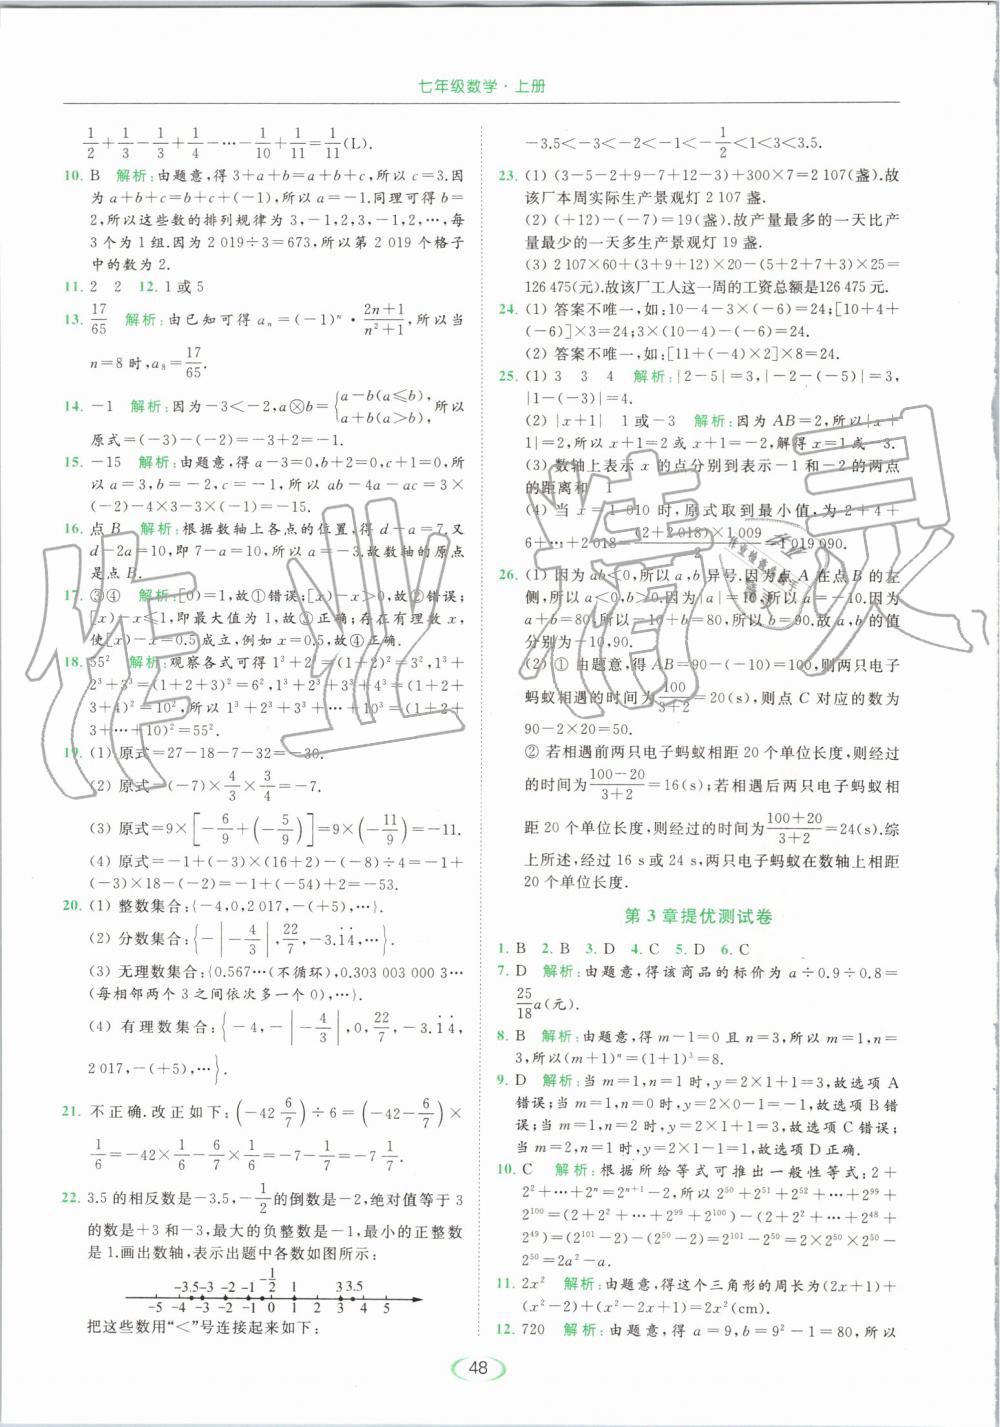 七年级数学·上册
1/2+1/3-1/3+1/4-…-1/10+1/11=1/11(L).
10. B 解析:由题意,得3+a+b=a+b+c,所以c=3.因
为a+b+c=b+c+(-1),所以a=-1.同理可得b=
2,所以这些数的排列规律为3,-1,2,3,-1,2,…,每
3个为1组.因为2 019÷3=673,所以第2 019个格子
中的数为2.
11. 2 2 12. 1或5
13. 17/65 解析:由已知可得aₙ=(-1)ⁿ·(2n+1)/(n²+1),所以当
n=8时,a₈=17/65.
14. -1 解析:因为-3<-2,a⊗b={a-b(a≤b), a+b(a>b),所以
原式=(-3)-(-2)=-3+2=-1.
15. -15 解析:由题意,得a-3=0,b+2=0,c+1=0,所
以a=3,b=-2,c=-1,所以ab-4a-ac=3×
(-2)-4×3-3×(-1)=-15.
16. 点B 解析:根据数轴上各点的位置,得d-a=7,又
d-2a=10,即7-a=10,所以a=-3.故数轴的原点
是点B.
17. ③④ 解析:[0)=1,故①错误;[x)-x>0,故②错误;
[x)-x≤1,即最大值为1,故③正确;存在有理数x,
使[x)-x=0.5成立,例如x=0.5,故④正确.
18. 55² 解析:观察各式可得1³+2³=(1+2)²=3²,1³+
2³+3³=(1+2+3)²=6²,1³+2³+3³+4³=(1+2+
3+4)²=10²,所以1³+2³+3³+…+10³=(1+2+
3+…+10)²=55².
19. (1) 原式=27-18-7-32=-30.
(2) 原式=(-7)×4/3×3/4=-7.
(3) 原式=9×[-6/9+(-5/9)]=9×(-11/9)=-11.
(4) 原式=-1+(-3)×(16+2)-(-8)÷4=-1+
(-3)×18-(-2)=-1+(-54)+2=-53.
20. (1) 整数集合:{-4,0,2 017,-(+5),…}.
(2) 分数集合:{-|-4/3|,22/7,-3.1̇4̇,…}.
(3) 无理数集合:{0.567…(不循环),0.303 003 000 3…
(每相邻两个3之间依次多一个0),…}.
(4) 有理数集合:{-4,-|-4/3|,0,22/7,-3.1̇4̇,
2 017,-(+5),…}.
21. 不正确.改正如下:(-42 6/7)÷6=(-42-6/7)×
1/6=-42×1/6-6/7×1/6=-7-1/7=-7 1/7.
22. 3.5的相反数是-3.5,-1/2的倒数是-2,绝对值等于3
的数是+3和-3,最大的负整数是-1,最小的正整数
是1.画出数轴,表示出题中各数如图所示:
-3.5 -3 -2 -1 -1/2 1 3 3.5
-5 -4 -3 -2 -1 0 1 2 3 4 5
把这些数用“<”号连接起来如下:
-3.5<-3<-2<-1<-1/2<1<3<3.5.
23. (1) (3-5-2+9-7+12-3)+300×7=2 107(盏).故
该厂本周实际生产景观灯2 107盏.
(2) (+12)-(-7)=19(盏).故产量最多的一天比产
量最少的一天多生产景观灯19盏.
(3) 2 107×60+(3+9+12)×20-(5+2+7+3)×25=
126 475(元).故该厂工人这一周的工资总额是126 475元.
24. (1) 答案不唯一,如:10-4-3×(-6)=24;[10+4+
(-6)]×3=24;3×(10-4)-(-6)=24.
(2) 答案不唯一,如:[11+(-4)×2]×8=24.
25. (1) 3 3 4 解析:|2-5|=3,|-2-(-5)|=3,
|1-(-3)|=4.
(2) |x+1| 1或-3 解析:因为AB=2,所以|x+
1|=2,所以x+1=2或x+1=-2,解得x=1或-3.
(3) 数轴上表示x的点分别到表示-1和-2的两点
的距离和 1
(4) 当x=1 010时,原式取到最小值,为2+4+
6+…+2 018=(2+2 018)×1 009/2=1 019 090.
26. (1) 因为ab<0,所以a,b异号.因为点A在点B的左
侧,所以a<0,b>0.因为|a|=10,所以a=-10.因为
a+b=80,所以-10+b=80,所以b=90.故a,b的值
分别为-10,90.
(2) ① 由题意,得AB=90-(-10)=100,则两只电子
蚂蚁相遇的时间为100/(3+2)=20(s),则点C对应的数为
90-2×20=50.
② 若相遇前两只电子蚂蚁相距20个单位长度,则经过
的时间为(100-20)/(3+2)=16(s);若相遇后两只电子蚂蚁相
距20个单位长度,则经过的时间为(100+20)/(3+2)=24(s).综
上所述,经过16 s或24 s,两只电子蚂蚁在数轴上相距
20个单位长度.
第3章提优测试卷
1. B 2. B 3. D 4. C 5. D 6. C
7. D 解析:由题意,得该商品的标价为a÷0.9÷0.8=
25/18 a(元).
8. B 解析:由题意,得m-1=0且n=3,所以m=1,n=
3,所以(m+1)ⁿ=(1+1)³=8.
9. D 解析:当m=1,n=1时,y=2×1+1=3,故选项A
错误;当m=1,n=0时,y=2×0-1=-1,故选项B错
误;当m=1,n=2时,y=2×1+1=3,故选项C错误;
当m=2,n=1时,y=2×1-1=1,故选项D正确.
10. C 解析:根据所给等式可推出一般性等式:2+
2²+…+2ⁿ=2ⁿ⁺¹-2,所以2⁵⁰+2⁵¹+2⁵²+…+2⁹⁹+
2¹⁰⁰=(2+2²+…+2⁹⁹+2¹⁰⁰)-(2+2²+…+2⁴⁸+
2⁴⁹)=(2¹⁰¹-2)-(2⁵⁰-2)=2¹⁰¹-2⁵⁰=2×2⁵⁰×2⁵⁰-
2⁵⁰=2a²-a.
11. 2x² 解析:由题意,得这个三角形的周长为(2x+1)+
(x²-2)+(x²-2x+1)=2x²(cm).
12. 720 解析:由题意,得a=9,b=9²-1=80,所以
48
作业精灵